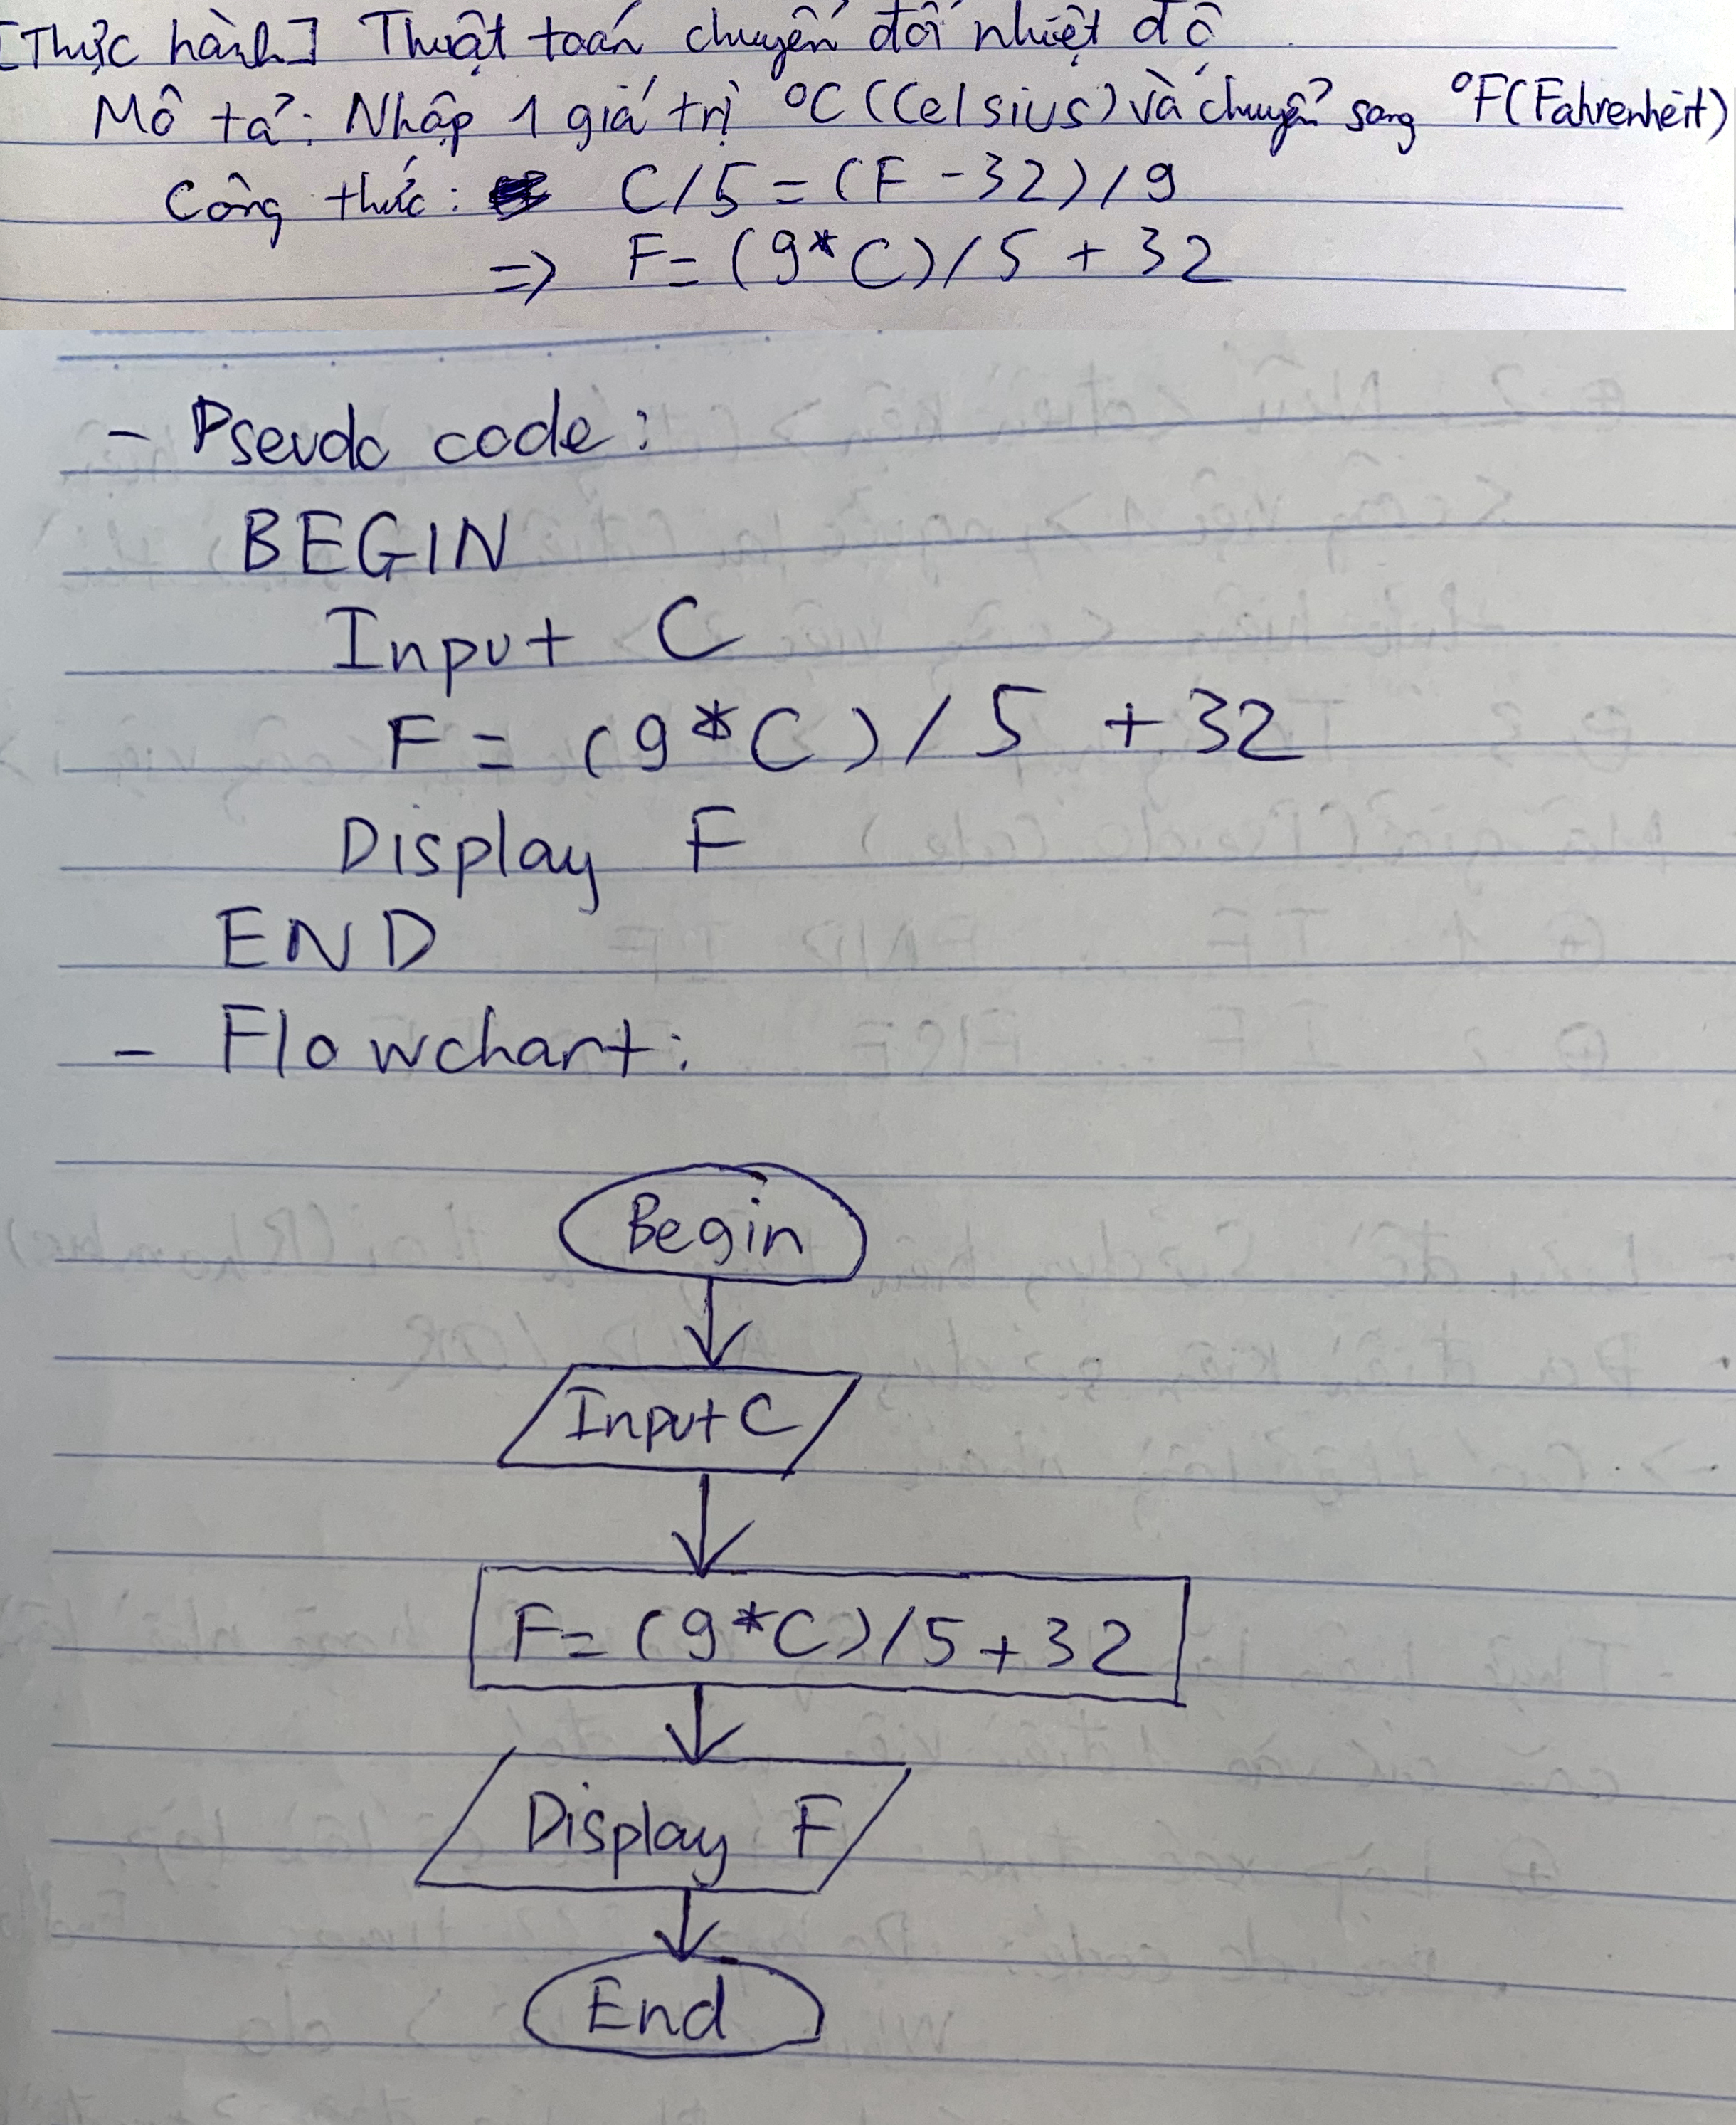 [Thực hành] Thuật toán chuyển đổi nhiệt độ
Mô tả: Nhập 1 giá trị °C (Celsius) và chuyển sang °F (Fahrenheit)
Công thức: C/5 = (F - 32)/9
=> F = (9*C)/5 + 32
- Pseudo code:
BEGIN
Input C
F = (9*C)/5 + 32
Display F
END
- Flowchart:
Begin
Input C
F = (9*C)/5 + 32
Display F
End